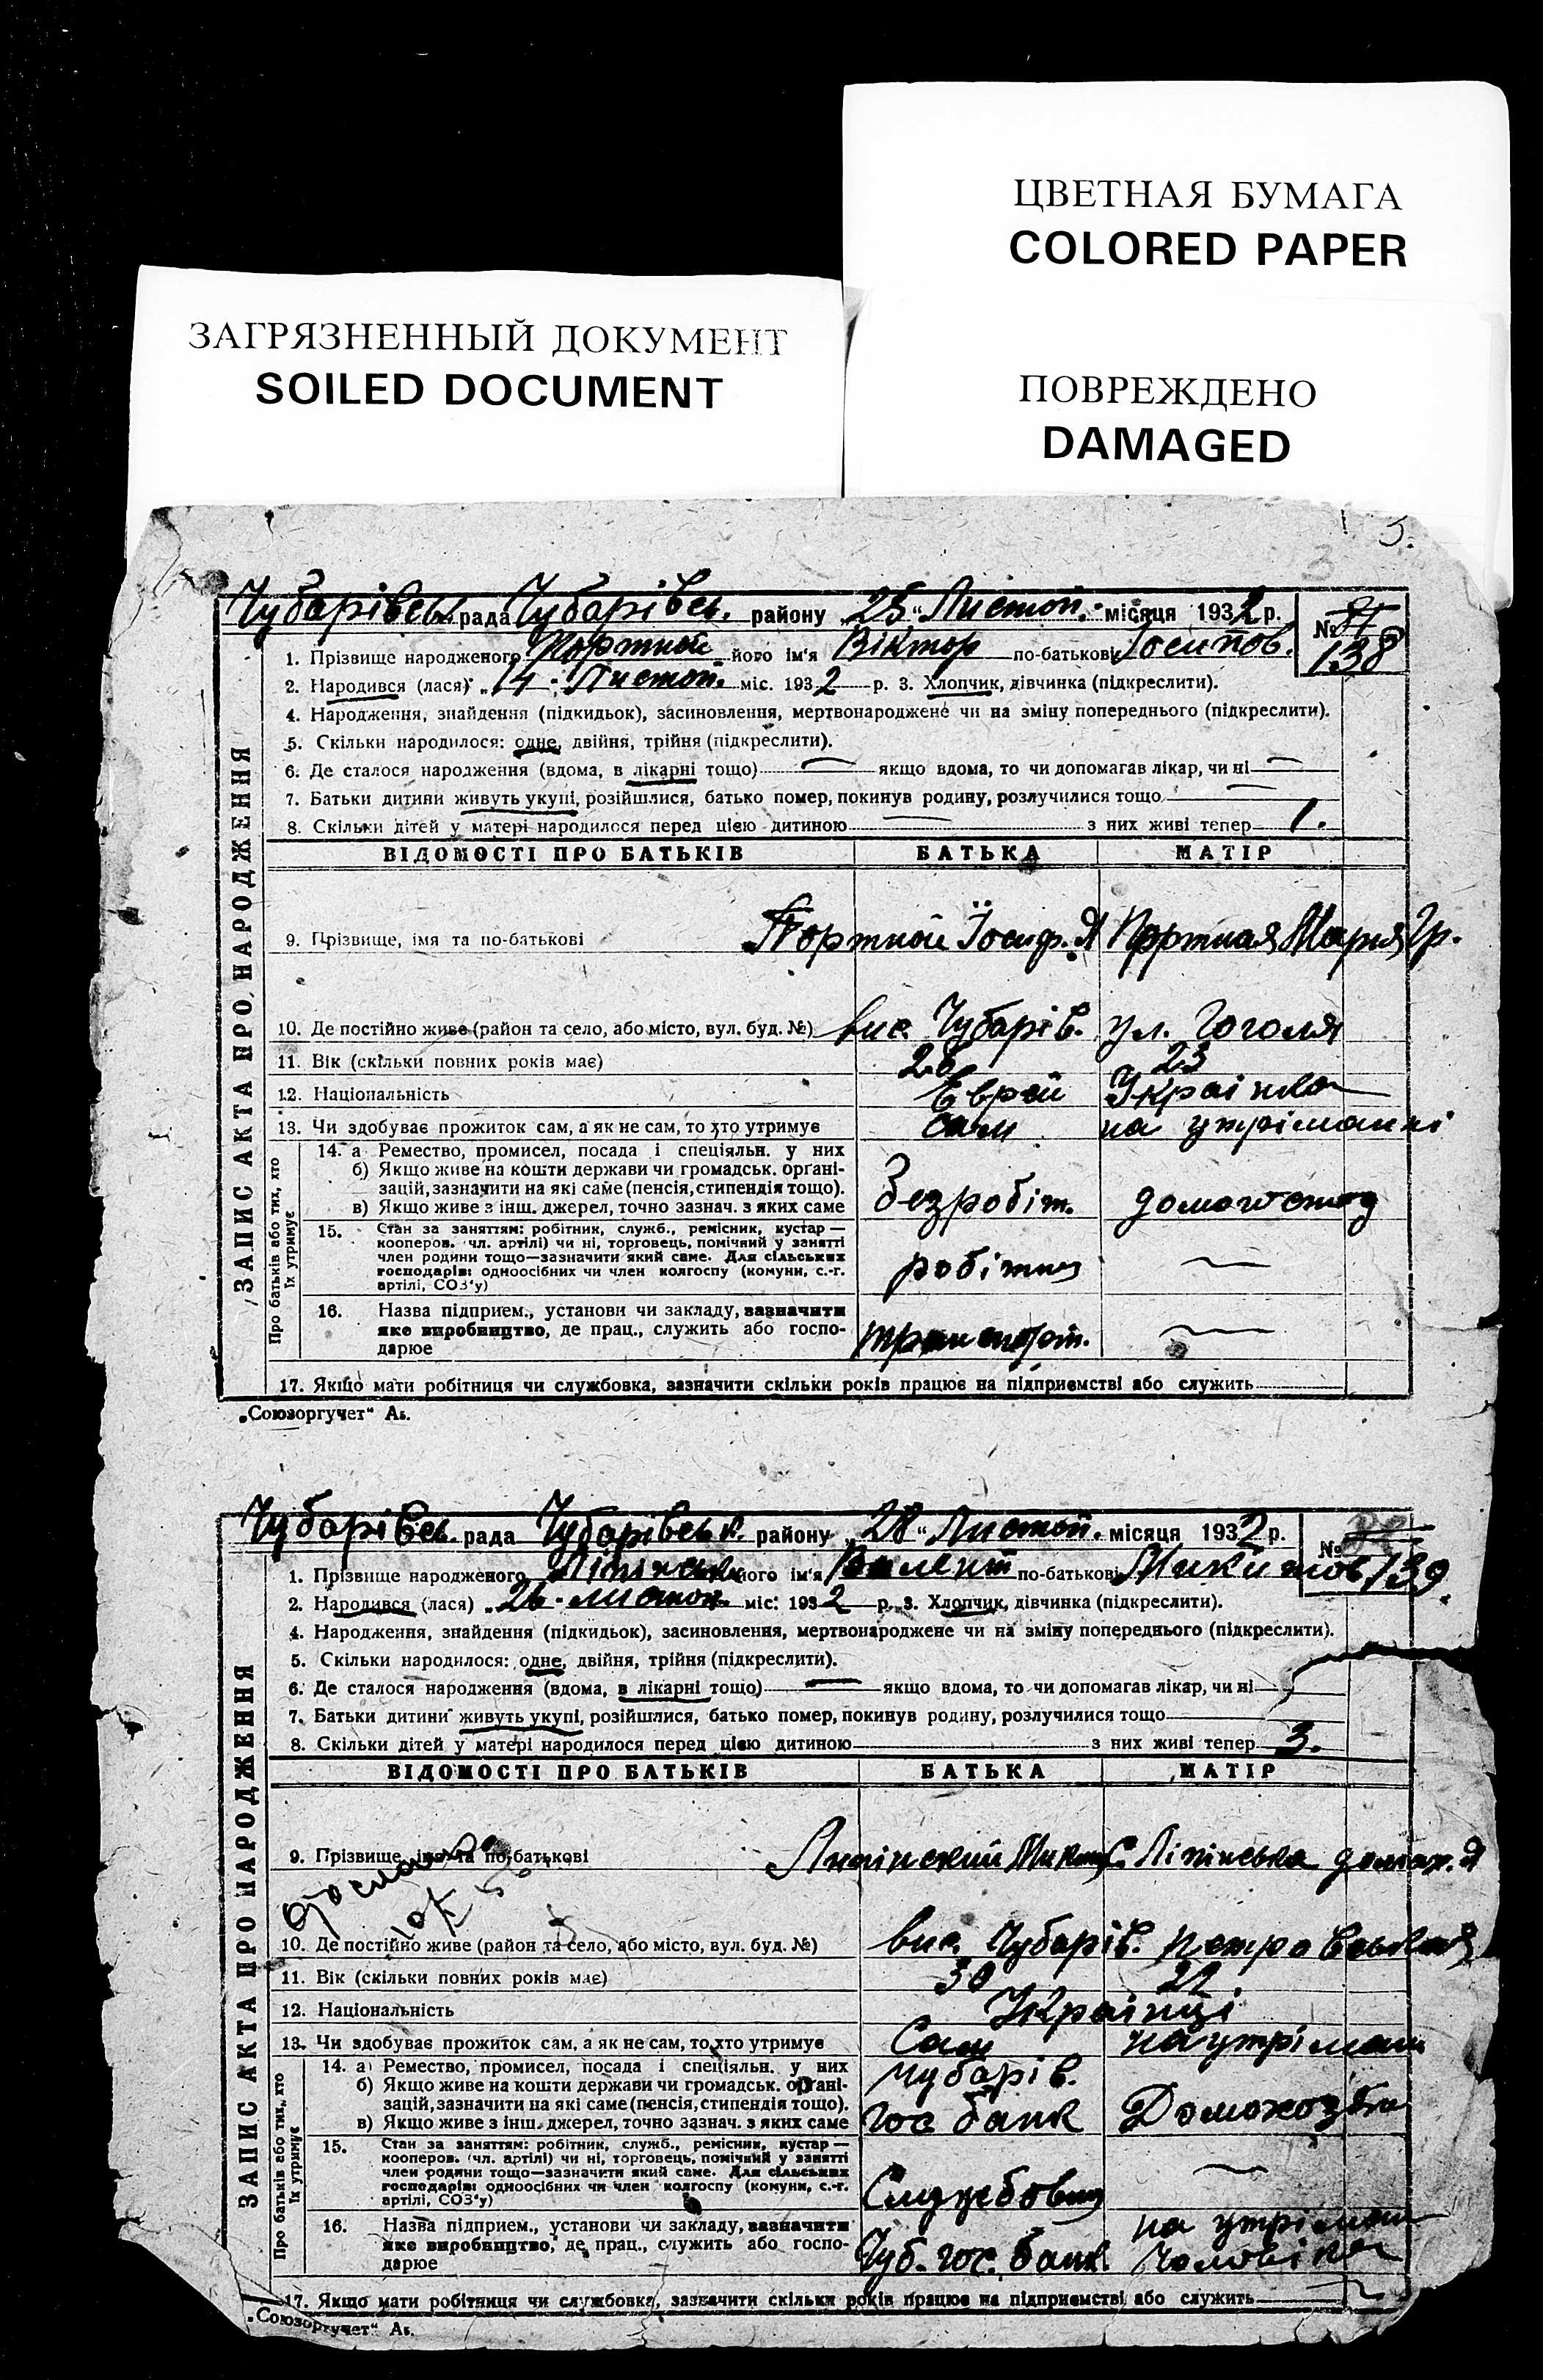 ЦВЕТНАЯ БУМАГА
COLORED PAPER
ЗАГРЯЗНЕННЫЙ ДОКУМЕНТ
SOILED DOCUMENT
ПОВРЕЖДЕНО
DAMAGED
3.
3
Чубарівськ рада Чубарівсь. району „25“ Листоп. місяця 1932 р.
№ 138
1. Прізвище народженого Портной його ім'я Віктор по-батькові Йосипов.
2. Народився (лася) „14. Листоп. міс. 1932 р. 3. Хлопчик, дівчинка (підкреслити).
4. Народження, знайдення (підкидьок), засиновлення, мертвонароджене чи на зміну попереднього (підкреслити).
5. Скільки народилося: одне, двійня, трійня (підкреслити).
6. Де сталося народження (вдома, в лікарні тощо) — якщо вдома, то чи допомагав лікар, чи ні —
7. Батьки дитини живуть укупі, розійшлися, батько помер, покинув родину, розлучилися тощо —
8. Скільки дітей у матері народилося перед цією дитиною — з них живі тепер 1.
ЗАПИС АКТА ПРО НАРОДЖЕННЯ
ВІДОМОСТІ ПРО БАТЬКІВ БАТЬКА МАТІР
9. Прізвище, імя та по-батькові Портной Йосиф. Я Портная Мария Гр.
10. Де постійно живе (район та село, або місто, вул. буд. №) вис. Чубарів. ул. Гоголя
11. Вік (скільки повних років має) 26 23
12. Національність Еврей Українка
13. Чи здобуває прожиток сам, а як не сам, то хто утримує сам на утріманні
Про батьків або тих, хто їх утримує
14. а Ремество, промисел, посада і спеціяльн. у них
б) Якщо живе на кошти держави чи громадськ. органі-
зацій, зазначити на які саме (пенсія, стипендія тощо).
в) Якщо живе з інш. джерел, точно зазнач. з яких саме
Безробіт.
15. Стан за заняттям: робітник, служб., ремісник, кустар —
кооперов. (чл. артілі) чи ні, торговець, помічний у занятті
член родини тощо—зазначити який саме. Для сільських
господарів: одноосібних чи член колгоспу (комуни, с.-г.
артілі, СОЗ'у)
робітник —
16. Назва підприєм., установи чи закладу, зазначити
яке виробництво, де прац., служить або госпо-
дарює
транспорт. —
17. Якщо мати робітниця чи службовка, зазначити скільки років працює на підприємстві або служить
„Союзоргучет“ Аь.
Чубарівсь. рада Чубарівськ. району „28“ Листоп. місяця 1932 р.
№ 139.
1. Прізвище народженого Ліпінськ його ім'я Валент по-батькові Микитов
2. Народився (лася) „26. листоп. міс. 1932 р. 3. Хлопчик, дівчинка (підкреслити).
4. Народження, знайдення (підкидьок), засиновлення, мертвонароджене чи на зміну попереднього (підкреслити).
5. Скільки народилося: одне, двійня, трійня (підкреслити).
6. Де сталося народження (вдома, в лікарні тощо) — якщо вдома, то чи допомагав лікар, чи ні
7. Батьки дитини живуть укупі, розійшлися, батько помер, покинув родину, розлучилися тощо
8. Скільки дітей у матері народилося перед цією дитиною з них живі тепер 3.
ЗАПИС АКТА ПРО НАРОДЖЕННЯ
ВІДОМОСТІ ПРО БАТЬКІВ БАТЬКА МАТІР
9. Прізвище, імя та по-батькові Ліпінский Микит. Ліпінська
10. Де постійно живе (район та село, або місто, вул. буд. №) вис. Чубарів.
11. Вік (скільки повних років має) 30
12. Національність Українці
13. Чи здобуває прожиток сам, а як не сам, то хто утримує Сам на утріман
Про батьків або тих, хто їх утримує
14. а) Ремество, промисел, посада і спеціяльн. у них
б) Якщо живе на кошти держави чи громадськ. органі-
зацій, зазначити на які саме (пенсія, стипендія тощо).
в) Якщо живе з інш. джерел, точно зазнач. з яких саме
Чубарів.
Гос банк
15. Стан за заняттям: робітник, служб., ремісник, кустар —
кооперов. (чл. артілі) чи ні, торговець, помічний у занятті
член родини тощо—зазначити який саме. Для сільських
господарів: одноосібних чи член колгоспу (комуни, с.-г.
артілі, СОЗ'у)
Службовец —
16. Назва підприєм., установи чи закладу, зазначити
яке виробництво, де прац., служить або госпо-
дарює
Чуб. гос. банк. на утріман чоловіка
17. Якщо мати робітниця чи службовка, зазначити скільки років працює на підприємстві або служить —
„Союзоргучет“ Аь.